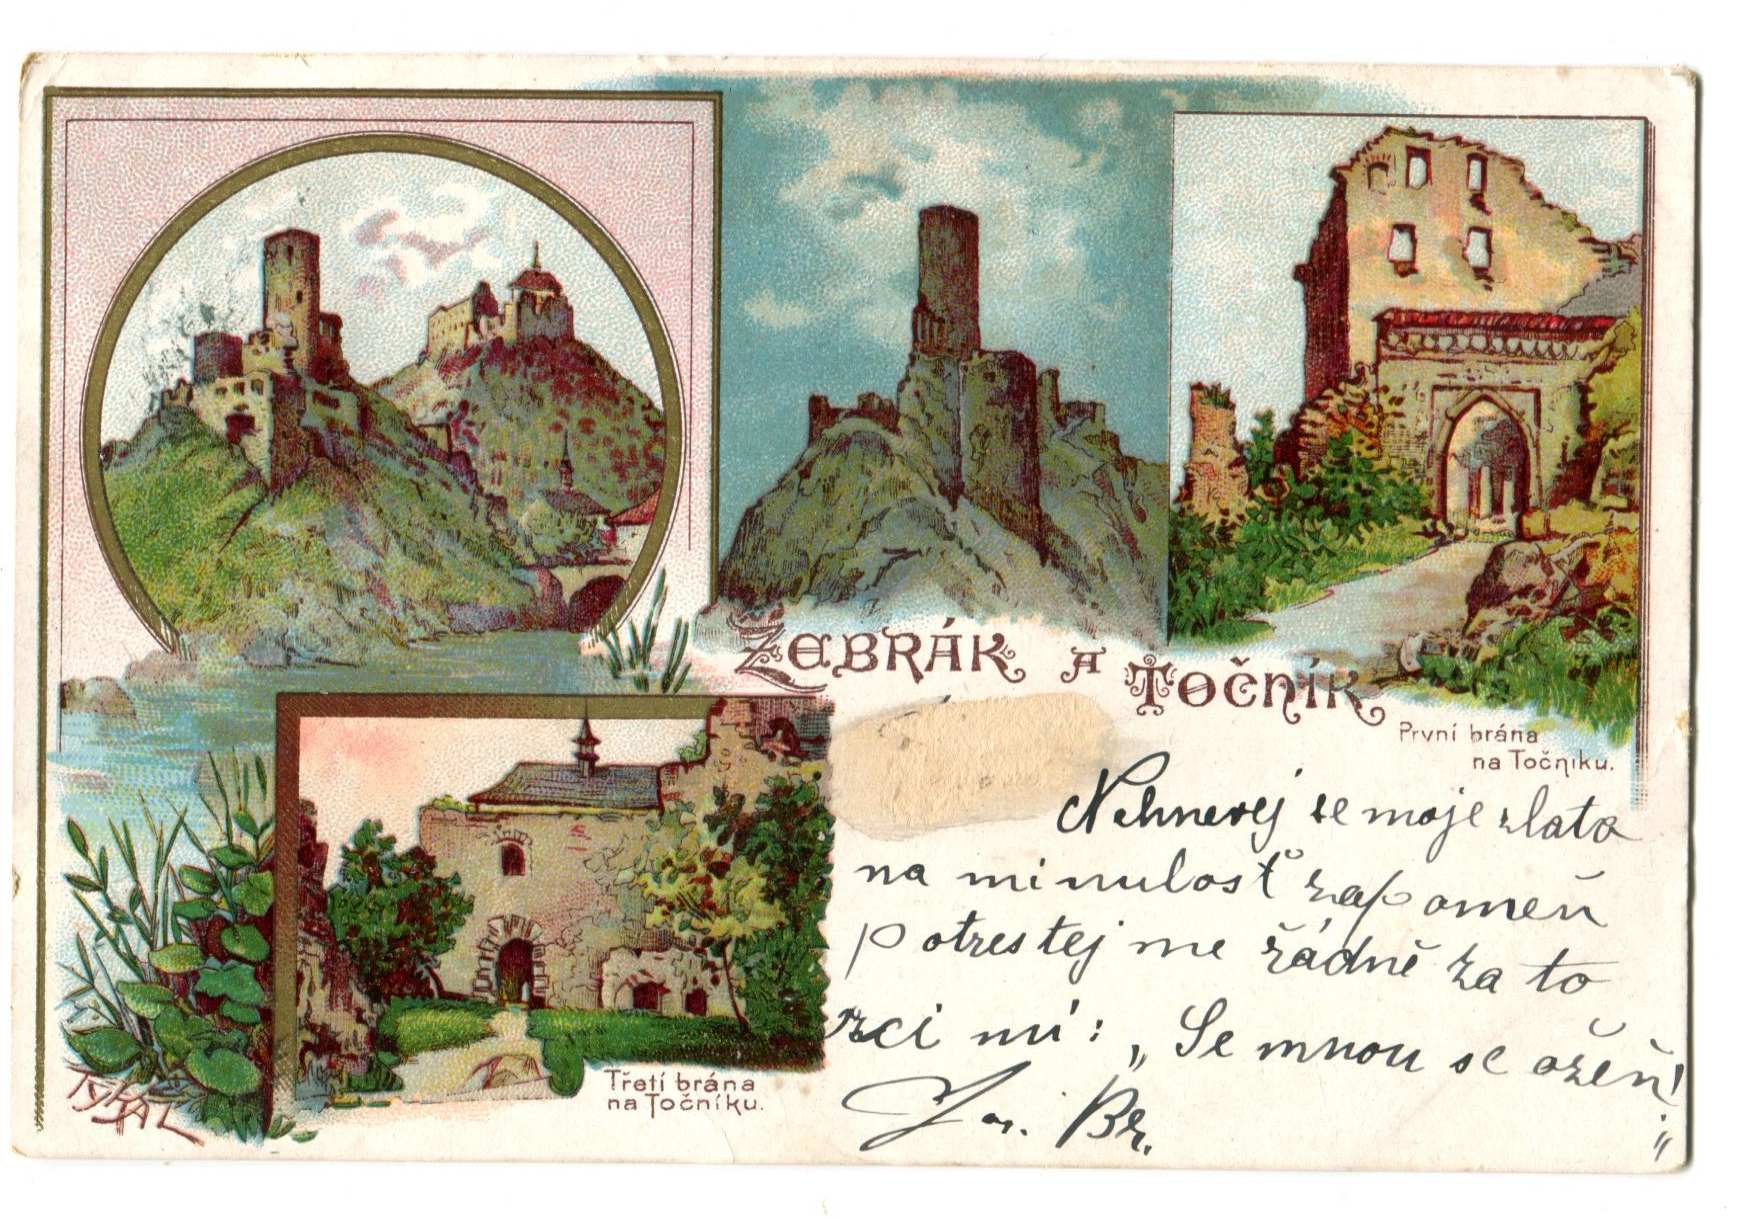 Žebrák a Točník
První brána
na Točníku.
Třetí brána
na Točníku.
TYKAL
Nehnevej se moje zlata
na minulosť zapomeň
potrestej me žádně za to
rci mi: „Se mnou se ožeň!"
Jar. Br.